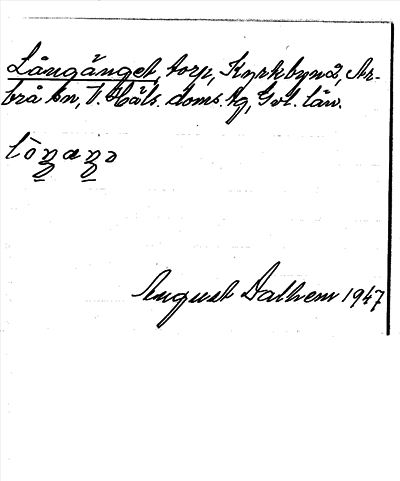 Långänget, torp, Kyrkbyn 2, Ar-
brå sn, V. Häls. doms. tg, Gvl. län.
lòŋaŋə
August Dalhem 1947